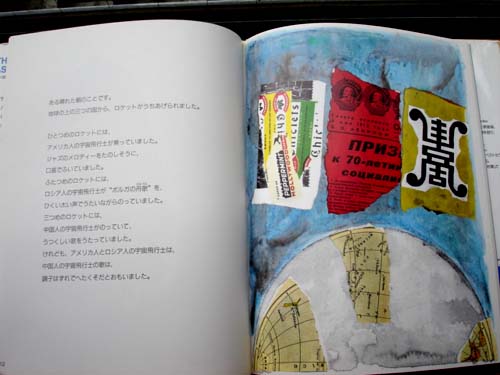 ある晴れた朝のことです。
地球の上の三つの国から、ロケットがうちあげられました。
ひとつめのロケットには、
アメリカ人の宇宙飛行士が乗っていました。
ジャズのメロディーをたのしそうに、
口笛でふいていました。
ふたつめのロケットには、
ロシア人の宇宙飛行士が“ボルガの舟歌”を、
ひくいだい声でうたいながらのっていました。
三つめのロケットには、
中国人の宇宙飛行士がのっていて、
うつくしい歌をうたっていました。
けれども、アメリカ人とロシア人の宇宙飛行士は、
中国人の宇宙飛行士の歌は、
調子はずれでへたくそだとおもいました。
Chiclets
PEPPERMINT
Chic
ПРИЗ
к 70-летию
социали
TH
AS